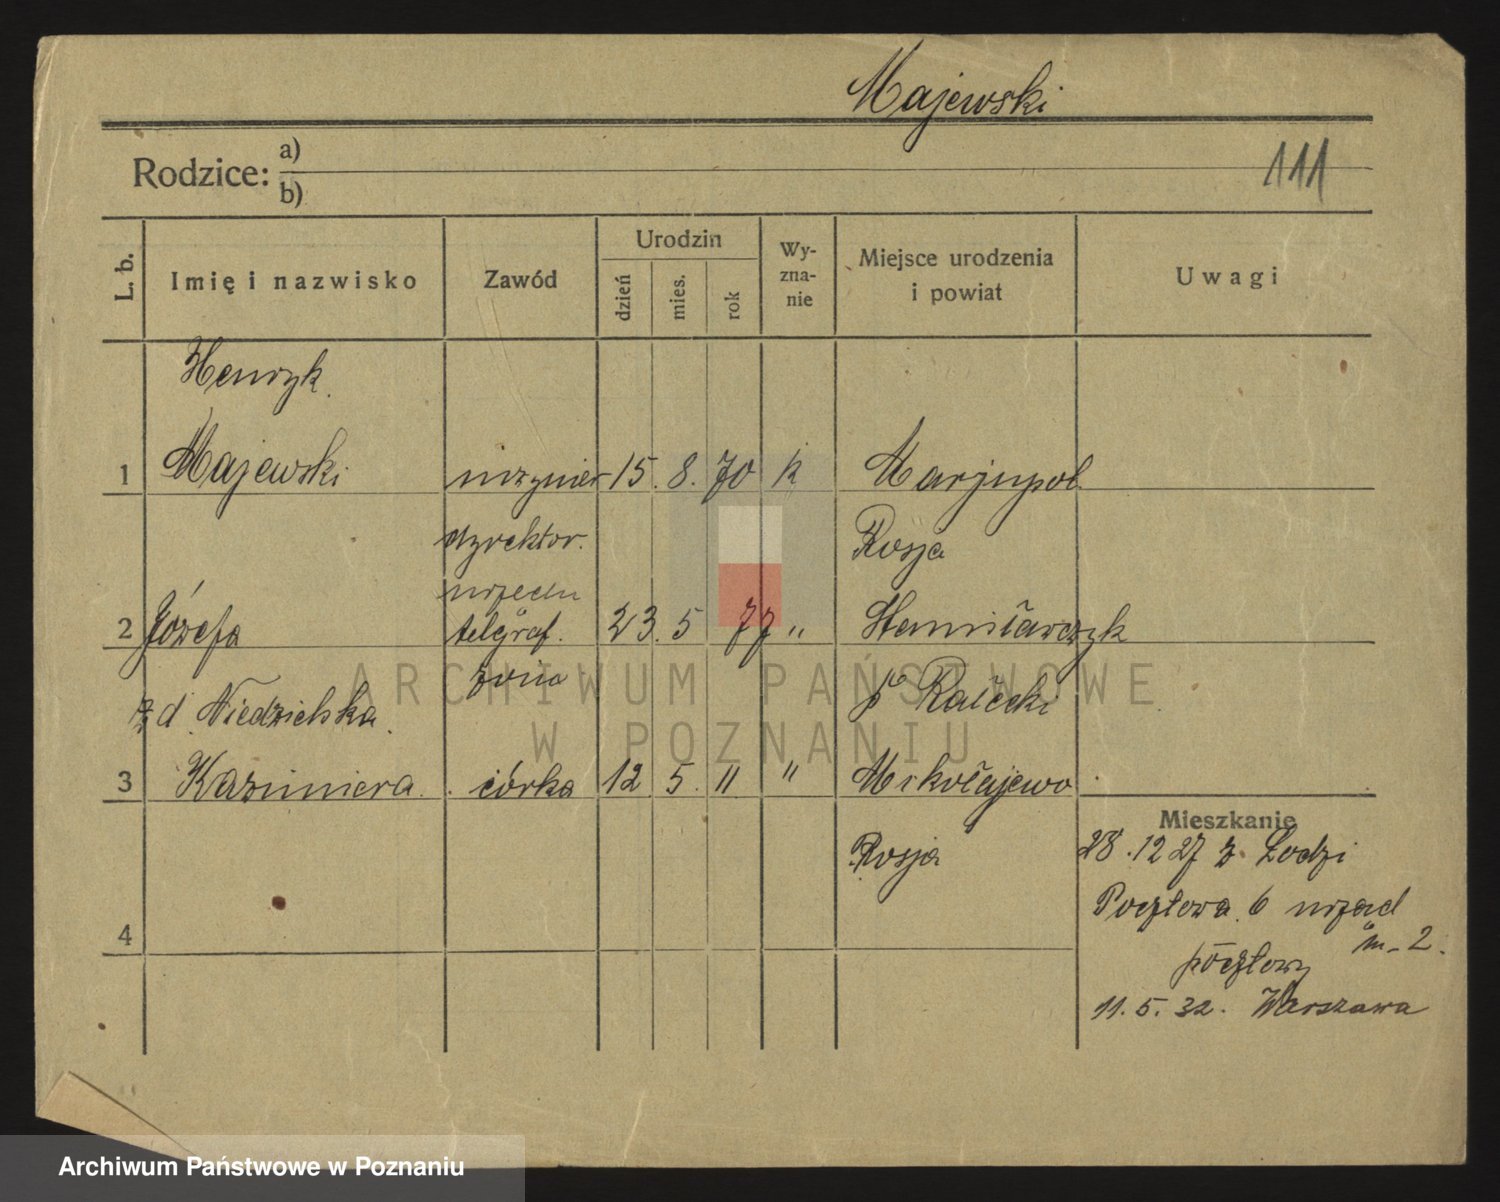 Majewski
111
Rodzice: a)
b)
L. b.
Imię i nazwisko
Zawód
Urodzin
dzień
mies.
rok
Wy-
zna-
nie
Miejsce urodzenia
i powiat
Uwagi
Henryk
1 Majewski inżynier 15. 8. 70 k Marjupol
dyrektor. Rosja
urzędu
2 Józefa telegraf. 23. 5 77 " Stanisławczyk
żona
zd. Niedzielska p
3 Kazimiera córka 12 5. " " Mikołajewo
Rosja
4
Mieszkanie
28.12 27 z Łodzi
Pocztowa 6 urząd
m. 2.
pocztowy
11. 5. 32. Warszawa
ARCHIWUM PAŃSTWOWE
W POZNANIU
Archiwum Państwowe w Poznaniu